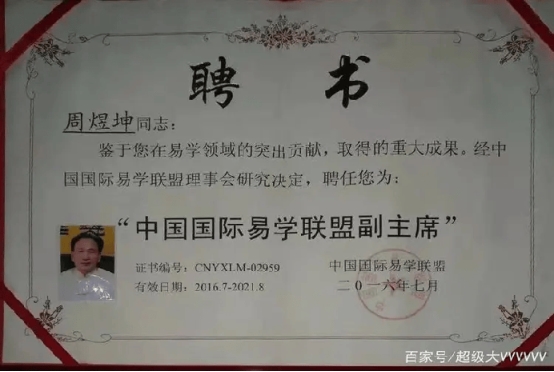 聘 书
周煜坤同志：
鉴于您在易学领域的突出贡献，取得的重大成果。经中
国国际易学联盟理事会研究决定，聘任您为：
“中国国际易学联盟副主席”
证书编号：CNYXLM-02959
中国国际易学联盟
有效日期：2016.7-2021.8
二〇一六年七月
百家号/超级大vVVVVVV